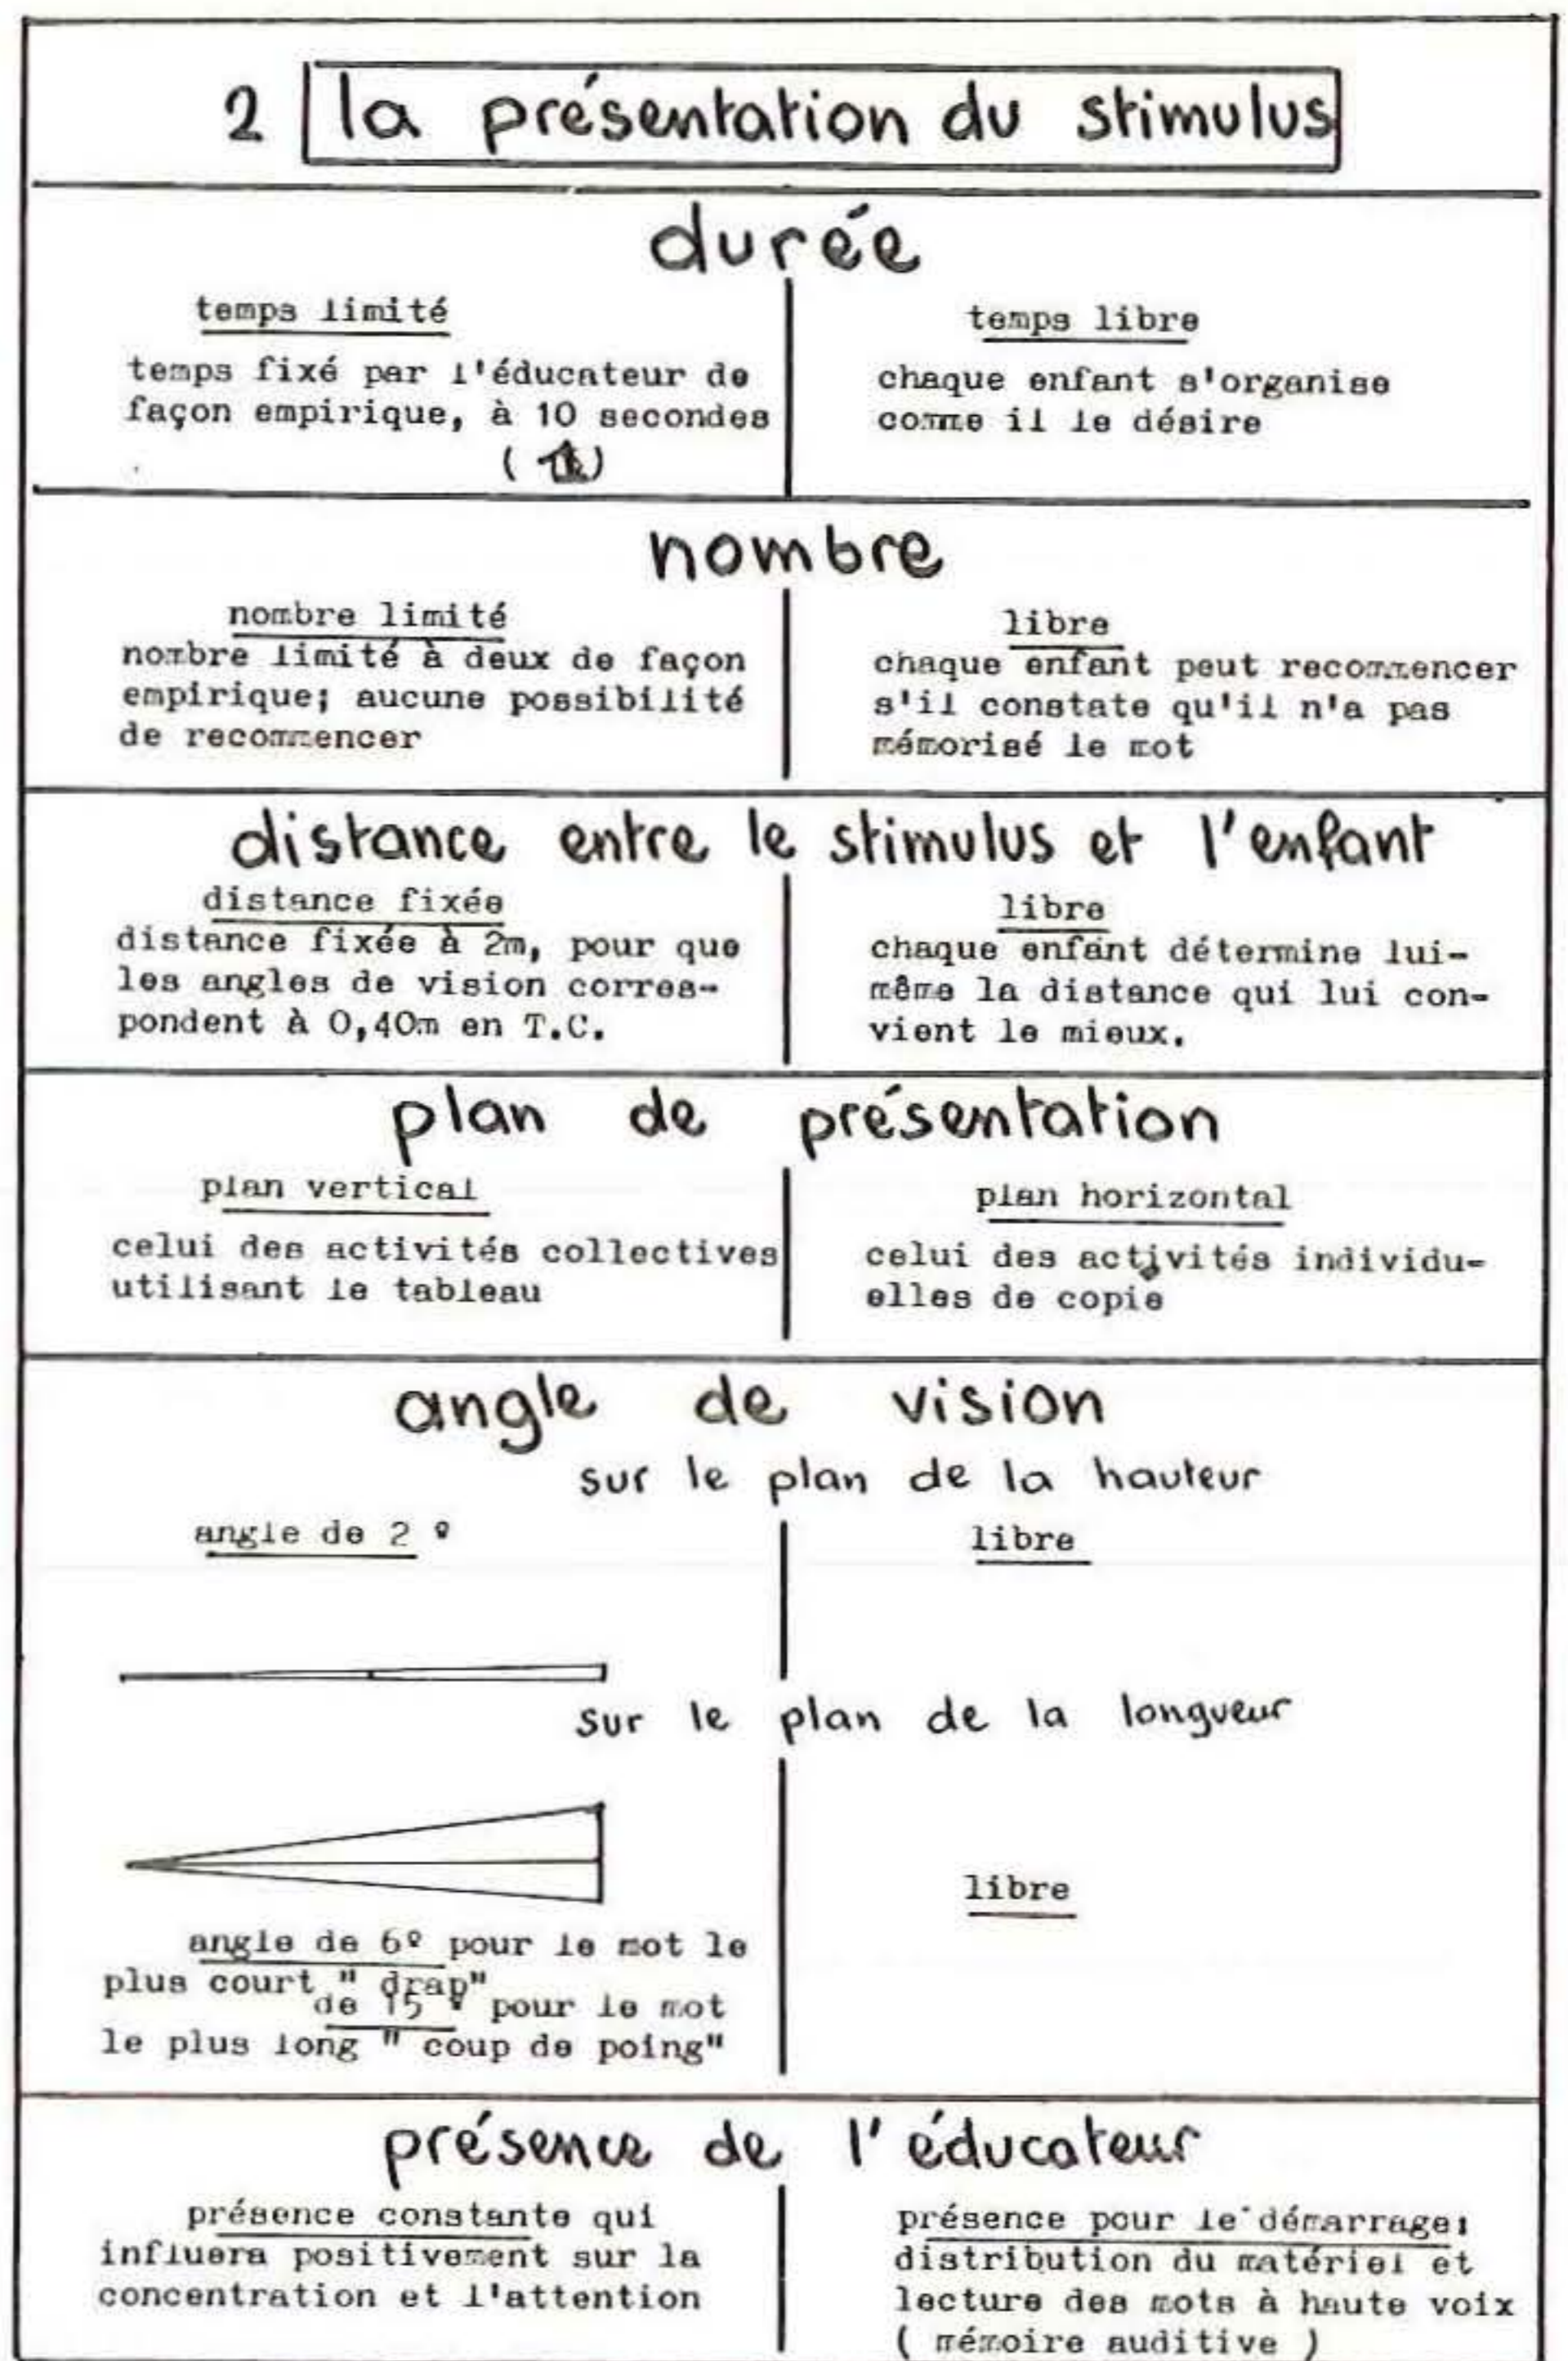 2 la présentation du stimulus
durée
temps limité
temps fixé par l'éducateur de
façon empirique, à 10 secondes
temps libre
chaque enfant s'organise
comme il le désire
nombre
nombre limité
nombre limité à deux de façon
empirique; aucune possibilité
de recommencer
libre
chaque enfant peut recommencer
s'il constate qu'il n'a pas
mémorisé le mot
distance entre le stimulus et l'enfant
distance fixée
distance fixée à 2m, pour que
les angles de vision corres-
pondent à 0,40m en T.C.
libre
chaque enfant détermine lui-
même la distance qui lui con-
vient le mieux.
plan de présentation
plan vertical
celui des activités collectives
utilisant le tableau
plan horizontal
celui des activités individu-
elles de copie
angle de vision
sur le plan de la hauteur
angle de 2 º
libre
sur le plan de la longueur
angle de 6º pour le mot le
plus court " drap"
de 15 º pour le mot
le plus long " coup de poing"
libre
présence de l'éducateur
présence constante qui
influera positivement sur la
concentration et l'attention
présence pour le démarrage:
distribution du matériel et
lecture des mots à haute voix
( mémoire auditive )